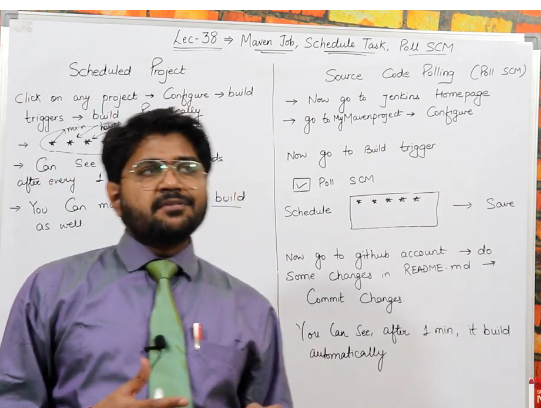 Lec-38 ⇒ Maven Job, Schedule Task, Poll SCM
Scheduled Project
Click on any project → Configure → build
triggers → build
→ * *
→ Can See
after every 1
→ You Can
build
as well.
Source Code Polling (Poll SCM)
→ Now go to Jenkins Homepage
→ go to MyMavenproject → Configure
Now go to Build trigger
☑ Poll SCM
Schedule * * * * * → Save
Now go to github account → do
Some changes in README.md →
Commit Changes.
You Can See, after 1 min, it build
automatically